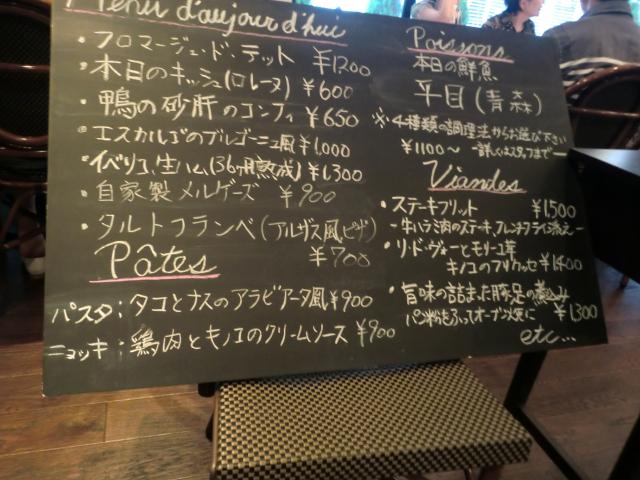 Menu d'aujourd'hui
・フロマージュ・ド・テット ¥1200
・本日のキッシュ(ロレーヌ) ¥600
・鴨の砂肝のコンフィ ¥650
・エスカルゴのブルゴーニュ風 ¥1,000
・イベリコ生ハム(36ヶ月熟成) ¥1,300
・自家製メルゲーズ ¥900
・タルトフランベ(アルザス風ピザ)
¥700
Pâtes
パスタ:タコとナスのアラビアータ風 ¥900
ニョッキ:鶏肉とキノコのクリームソース ¥900
Poissons
本日の鮮魚
平目(青森)
※4種類の調理法からお選び下さい
¥1100〜 詳しくはスタッフまで
Viandes
・ステーキフリット ¥1,500
-牛ハラミ肉のステーキ、フレンチフライ添え-
・リ・ド・ヴォーとモリーユ茸
キノコのフリカッセ ¥1400
・旨味の詰まった豚足の煮込み
パン粉をふってオーブン焼に ¥1,300
etc...